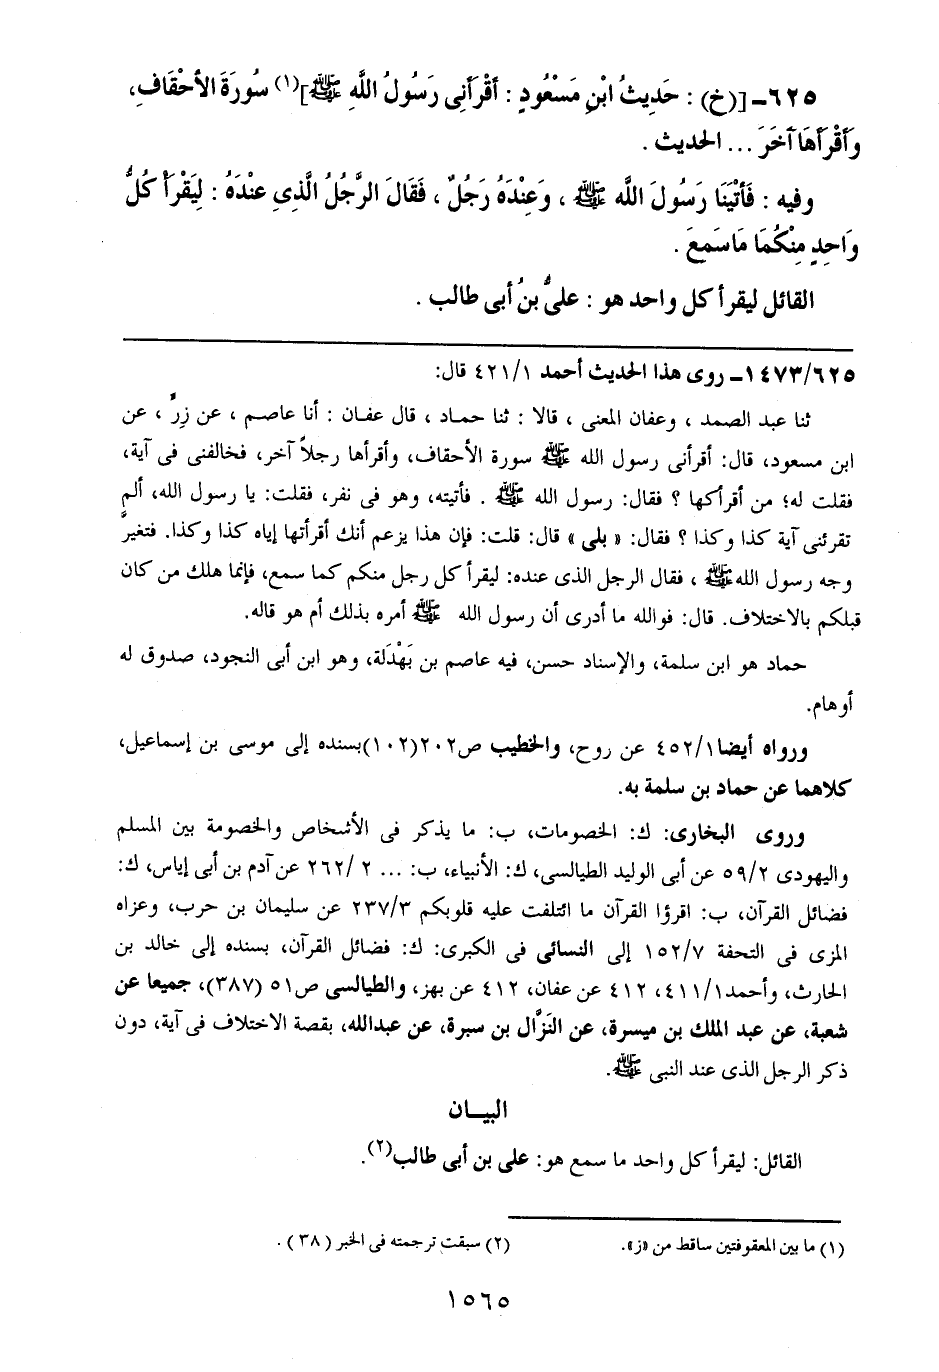 ٦٢٥ـ [(خ) : حَدِيثُ ابْنِ مَسْعُودٍ : أَقْرَأَنِى رَسُولُ اللَّهِ ﷺ](١) سُورَةَ الأَحْقَافِ،
وَأَقْرَأَهَا آخَرَ ... الحديث .
وفيه : فَأَتَيْنَا رَسُولَ اللَّه ﷺ ، وَعِنْدَهُ رَجُلٌ ، فَقَالَ الرَّجُلُ الَّذِى عِنْدَهُ : لِيَقْرَأْ كُلُّ
وَاحِدٍ مِنْكُمَا مَا سَمِعَ .
القائل ليقرأ كل واحد هو : علىُّ بنُ أبى طالب .
١٤٧٣/٦٢٥ـ روى هذا الحديث أحمد ٤٢١/١ قال:
ثنا عبد الصمد ، وعفان المعنى ، قالا : ثنا حماد ، قال عفان : أنا عاصم ، عن زِرٍّ ، عن
ابن مسعود، قال: أقرأنى رسول الله ﷺ سورة الأحقاف، وأقرأها رجلاً آخر، فخالفنى فى آية،
فقلت له؛ من أقرأكها ؟ فقال: رسول الله ﷺ . فأتيته، وهو فى نفر، فقلت: يا رسول الله، ألم
تقرئنى آية كذا وكذا ؟ فقال: « بلى » قال: قلت: فإن هذا يزعم أنك أقرأتها إياه كذا وكذا. فتغيرَّ
وجه رسول الله ﷺ ، فقال الرجل الذى عنده: ليقرأ كل رجل منكم كما سمع، فإنما هلك من كان
قبلكم بالاختلاف. قال: فوالله ما أدرى أن رسول الله ﷺ أمره بذلك أم هو قاله.
حماد هو ابن سلمة، والإسناد حسن، فيه عاصم بن بَهْدَلة، وهو ابن أبى النجود، صدوق له
أوهام.
ورواه أيضا ٤٥٢/١ عن روح، والخطيب ص٢٠٢(١٠٢)بسنده إلى موسى بن إسماعيل،
كلاهما عن حماد بن سلمة به.
وروى البخارى: ك: الخصومات، ب: ما يذكر فى الأشخاص والخصومة بين المسلم
واليهودى ٥٩/٢ عن أبى الوليد الطيالسى، ك: الأنبياء، ب: ... ٢ /٢٦٢ عن آدم بن أبى إياس، ك:
فضائل القرآن، ب: اقرؤا القرآن ما ائتلفت عليه قلوبكم ٢٣٧/٣ عن سليمان بن حرب، وعزاه
المزى فى التحفة ١٥٢/٧ إلى النسائى فى الكبرى: ك: فضائل القرآن، بسنده إلى خالد بن
الحارث، وأحمد٤١١/١، ٤١٢ عن عفان، ٤١٢ عن بهز، والطيالسى ص٥١ (٣٨٧)، جميعا عن
شعبة، عن عبد الملك بن ميسرة، عن النَزَّال بن سبرة، عن عبدالله، بقصة الاختلاف فى آية، دون
ذكر الرجل الذى عند النبى ﷺ.
البيـــان
القائل: ليقرأ كل واحد ما سمع هو: على بن أبى طالب(٢).
(١) ما بين المعقوفتين ساقط من «ز». (٢) سبقت ترجمته فى الخبر ( ٣٨ ) .
١٥٦٥